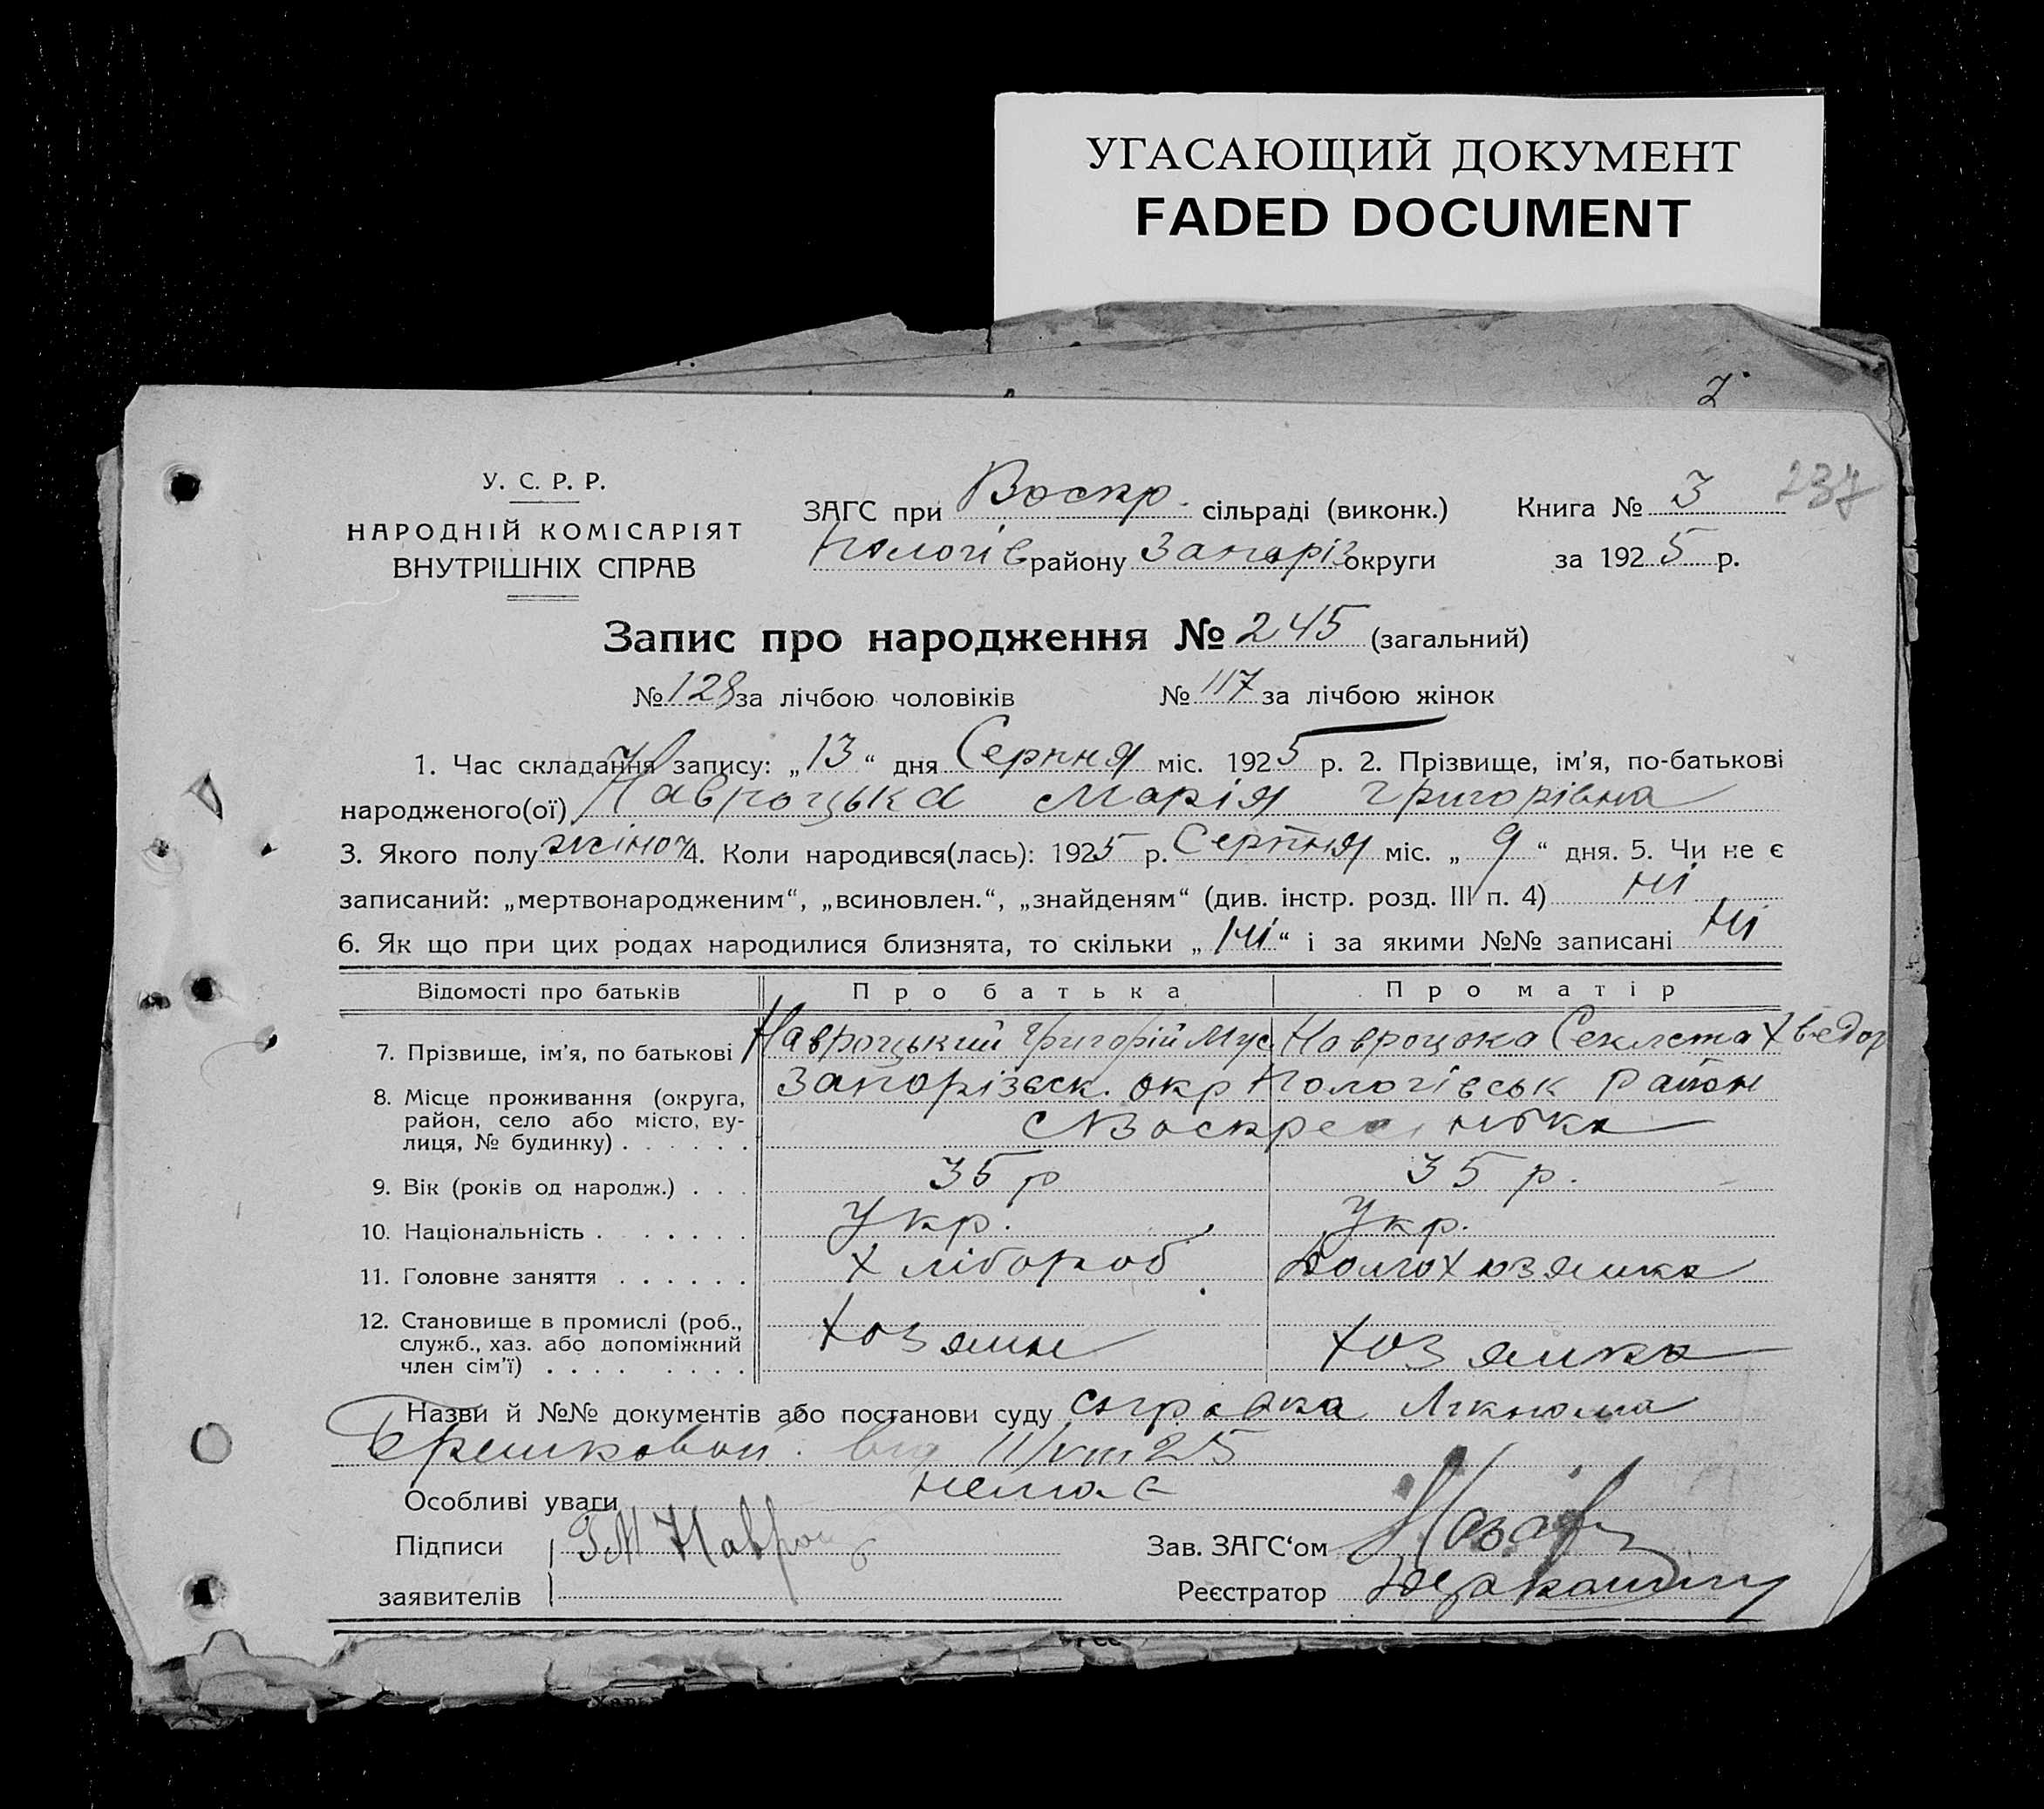 УГАСАЮЩИЙ ДОКУМЕНТ
FADED DOCUMENT
У. С. Р. Р.
НАРОДНІЙ КОМІСАРІЯТ
ВНУТРІШНІХ СПРАВ
ЗАГС при Воскр. сільраді (виконк.)
Пологів району Запоріз округи
Книга № 3 237
за 1925 р.
Запис про народження № 245 (загальний)
№ 128 за лічбою чоловіків № 117 за лічбою жінок
1. Час складання запису: „13“ дня Серпня міс. 1925 р. 2. Прізвище, ім'я, по-батькові
народженого(ої) Навроцька Марія Григорівна
3. Якого полу жіноч 4. Коли народився(лась): 1925 р. Серпня міс. „9“ дня. 5. Чи не є
записаний: „мертвонародженим“, „всиновлен.“, „знайденям“ (див. інстр. розд. III п. 4) ні
6. Як що при цих родах народилися близнята, то скільки „ні“ і за якими №№ записані ні
Відомості про батьків Про батька Про матір
7. Прізвище, ім'я, по батькові Навроцький Григорій Мус Навроцька Секлета Хведор
8. Місце проживання (округа, Запорізьск. окр Пологівськ район
район, село або місто, ву-
лиця, № будинку) . . . . . .
9. Вік (років од народж.) . . . 35 р 35 р.
10. Національність . . . . . . . Укр. Укр.
11. Головне заняття . . . . . . Хлібороб Домохозяйка
12. Становище в промислі (роб.,
служб., хаз. або допоміжний Хозяин Хозяйка
член сім'ї) . . . . . . . .
Назви й №№ документів або постанови суду справка
від 11/VIII 25
Особливі уваги немає
Підписи ГМ Навроц Зав. ЗАГС'ом
заявителів Реєстратор